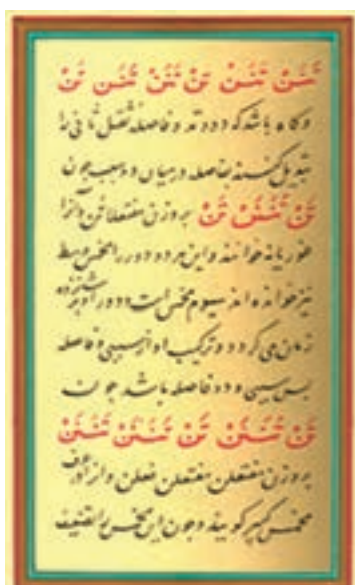 تَنَنْ تَنَنْ تَنْ تَنَنْ تَنَنْ تَنْ
و گاه باشد که دو وتد و فاصله ثقیل ثانی را
تبدیل کنند بفاصله در میان دو سبب چون
تَنْ تَنَنَنْ تَنْ بر وزن مفتعلاتن و آنرا
خوانند و این هر دو دور را مخمس وسط
نیز خوانده‌اند سیوم مخمس است و دور او بر شانزده
زمان می‌گردد و ترکیب او از سببی و فاصله
پس سببی و دو فاصله باشد چون
تَنْ تَنَنَنْ تَنْ تَنَنَنْ تَنَنَنْ
بر وزن مفتعلن مفتعلن فعلن و از
مخمس کبیر گویند و چون این مخمس را تضعیف